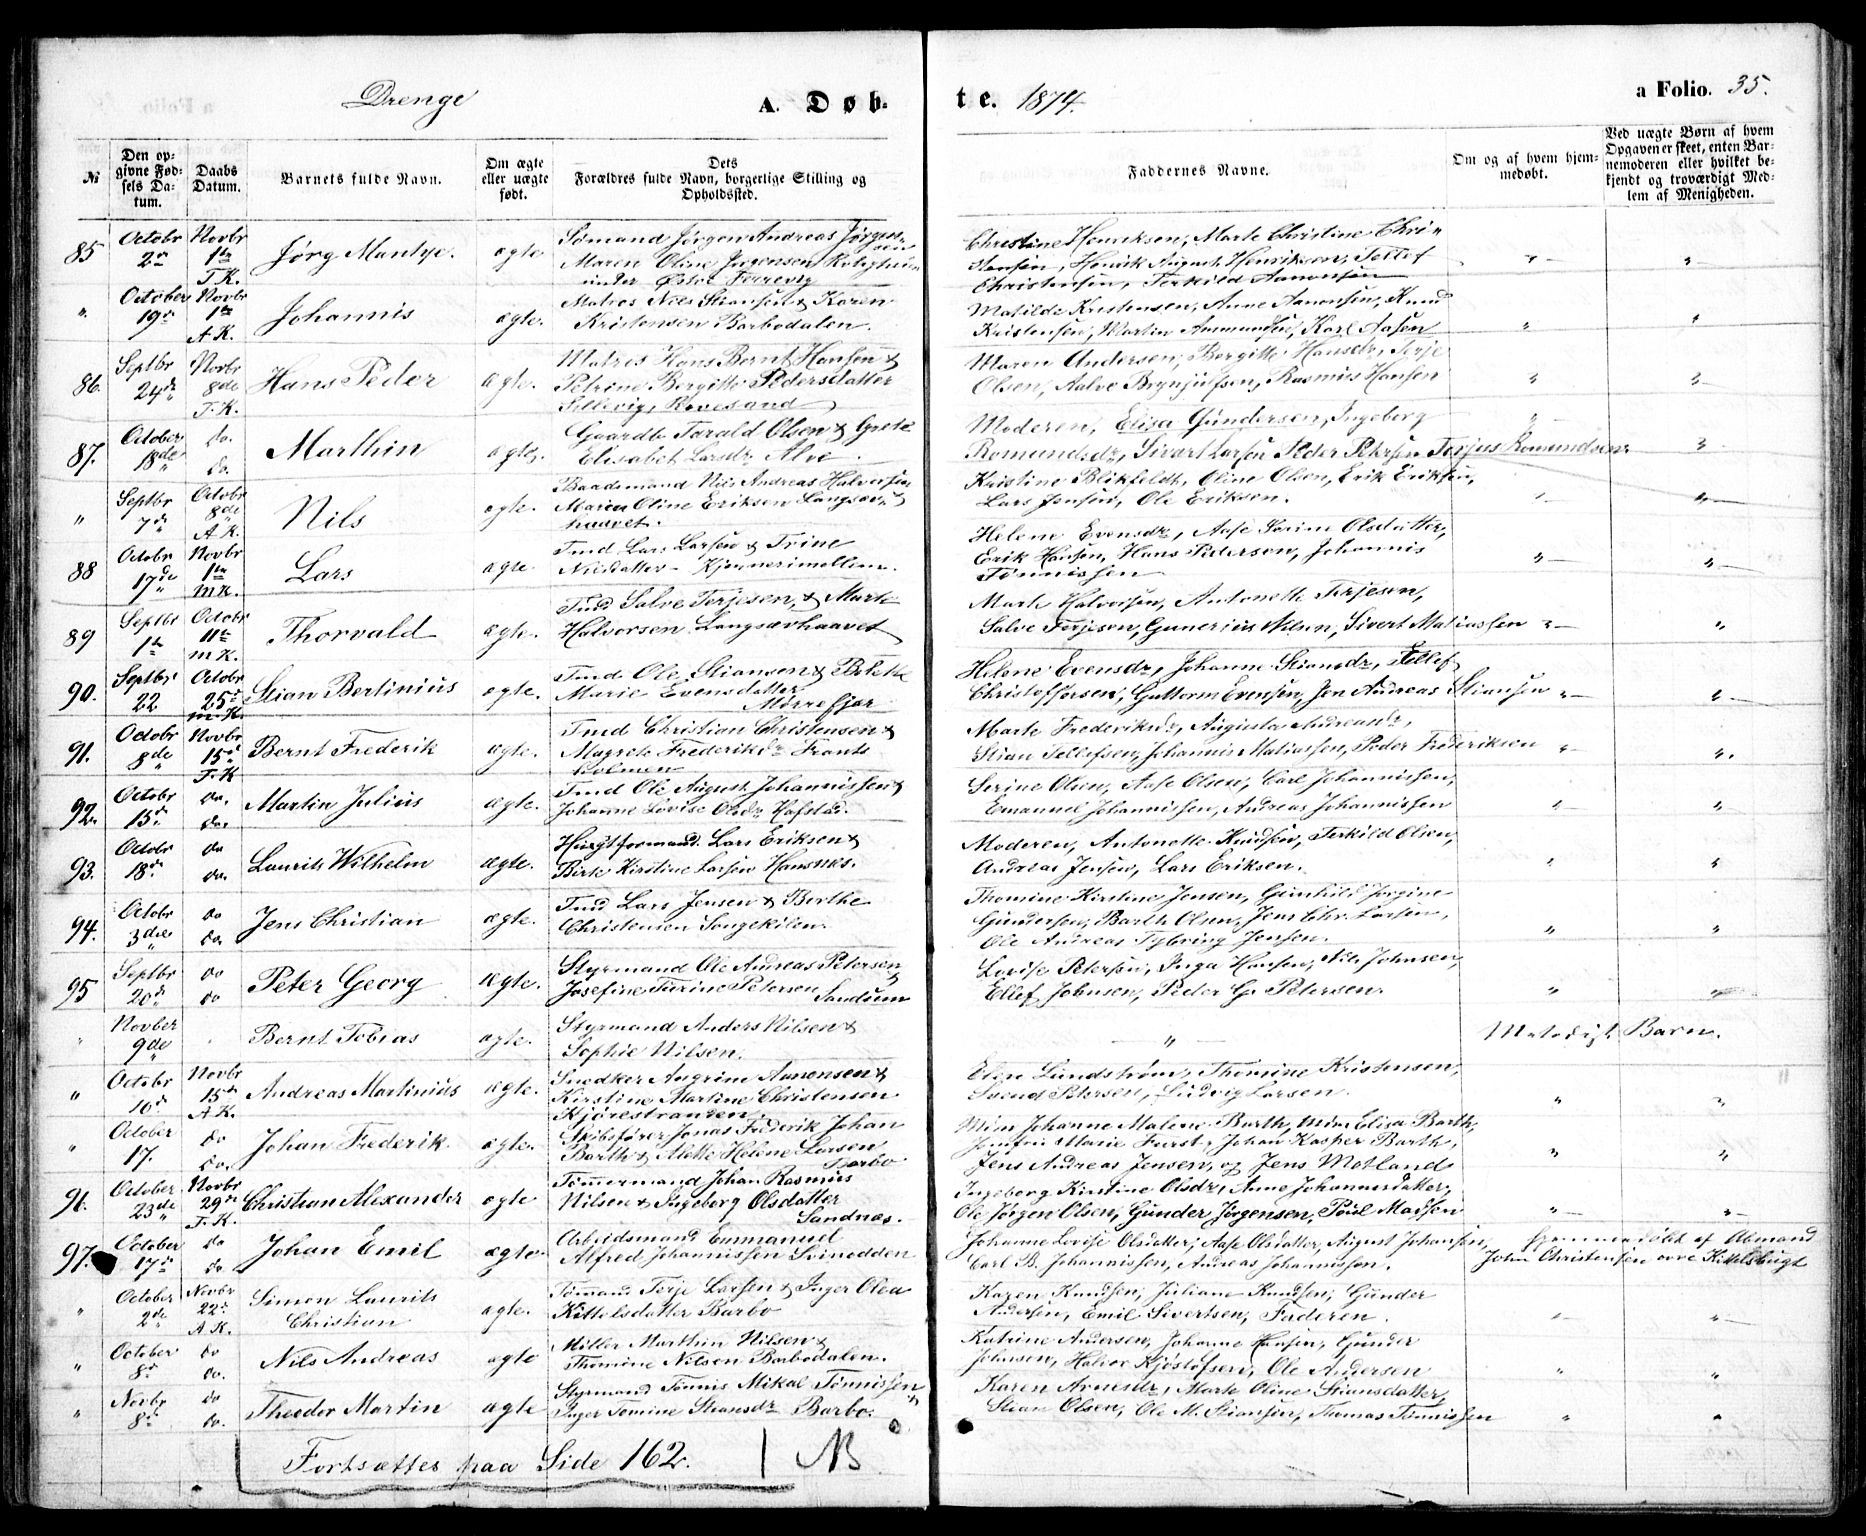 Drenge
A. Døb-
te. 1874.
a Folio. 35.
№
Den op-
givne Fød-
sels Da-
tum.
Daabs
Datum.
Barnets fulde Navn.
Om ægte
eller uægte
født.
Dets
Forældres fulde Navn, borgerlige Stilling og
Opholdssted.
Faddernes Navne.
Om og af hvem hjem-
medøbt.
Ved uægte Børn af hvem
Opgaven er skeet, enten Bar-
nemoderen eller hvilket be-
kjendt og troværdigt Med-
lem af Menigheden.
85 Octobr 2 Novbr 1te T.K. Jørg ægte
Sømand Jørgen Andreas Jørgen-
sen Maren Oline Jørgensen
under Østre
Christine Henriksen, Marte Christine Chri-
stensen, Henrik August Henriksen, Tellef
Christensen, Terkild Aanonsen
" October 19 Novbr 1te A.K. Johannis ægte.
Matros Nils Stiansen & Karen
Kristensen Barbodalen.
Matilde Kristensen, Anne Aanonsen, Knud
Kristensen, Martin Ammundsen, Karl Aasen
86. Septbr 24de Novbr 8de T.K. Hans Peder ægte.
Matros Hans Bernt Hansen &
Petrine Bergitte Pedersdatter
Maren Andersen, Bergitte Hansdr, Terje
Olsen, Aalve Brynjulfsen, Rasmus Hansen
87. October 18de do. do. Marthin ægte.
Gaardb Tarald Olsen & Grete
Elisabet Larsdr Alve
Moderen, Elisa Gundersen, Ingeborg
Romundsdr, Sivert Larsen Peder Petersen Terjus Romundsen
" Septbr 7de Octobr 8de A.K. Nils ægte
Baadsmand Nils Andreas Halvorsen
Maren Oline Eriksen Langsæv-
haavet.
Kristine Blikfeldt, Oline Olsen, Erik Eriksen,
Lars Jensen, Ole Eriksen.
88 Octobr 17de Novbr 1te M.K. Lars ægte
Tmd Lars Larsen & Trine
Nilsdatter
Helene Evensdr, Aase Sorine Olsdatter,
Erik Hansen, Hans Pedersen, Johannis
Tønnissen
89 Septbr 1te Octobr 11te M.K. Thorvald ægte.
Tmd Salve Terjesen, & Marte
Halvorsen Langsævhaavet
Marte Halvorsen, Antonette Terjesen,
Salve Terjesen, Gunerius Sivert Matiassen
90. Septbr 22 Octobr 25 M.K. Stian Bertinius ægte.
Tmd Ole Stiansen & Birthe
Marie Evensdatter
Mørrefjær
Helene Evensdr, Johanne Stiansdr, Tellef
Christoffersen, Guttorm Evensen, Jon Andreas Stiansen
91. Octobr 8de Novbr 15de T.K. Bernt Frederik ægte.
Tmd Christian Christensen &
Magrete Frederiksdr Frants
holmen
Marte Frederiksdr, Augusta Andreasdr,
Stian Tellefsen, Johannis Matiassen, Peder Frederiksen
92. Octobr 15de do. do. Martin Julius ægte.
Tmd Ole August Johannissen &
Johanne Lovise Olsdr Hafstad.
Serine Olsen, Aase Olsen, Carl Johannissen,
Emanuel Johannissen, Andreas Johannissen
93. Octobr 18de do do. Laurits Wilhelm ægte.
Lars Eriksen &
Birte Kirstine Larsen Hansnæs.
Moderen, Antonette Knudsen, Terkild Olsen,
Andreas Jensen, Lars Eriksen.
94. Octobr 3die do do. Jens Christian ægte.
Tmd Lars Jensen & Berthe
Christensen Songekilen.
Thomine Kirstine Jensen, Gunhild Jorgine
Gundersen, Barth Olsen, Jens Chr. Larsen,
Ole Andreas Tybring Jensen.
95 Septbr 20de do do Peter Georg ægte.
Styrmand Ole Andreas Petersen
& Josefine Turine Petersen Sandum
Lovise Petersen, Inga Hansen, Nils Johnsen,
Ellef Johnsen, Peder G. Petersen.
" Novber 9de Bernt Tobias ægte.
Styrmand Anders Nilsen &
Sophie Nilsen.
"
Metodist Barn.
" Octobr 10de Novbr 15de A.K. Andreas Martinius ægte.
Snedker Angrim Aanonsen &
Kirstine Martine Christensen
Kjørestranden.
Elen Lundstrøm, Thomine Kristensen,
Svend Petersen, Ludvig Larsen.
" October 17. do do. Johan Frederik ægte.
Skibsfører Jonas Frederik Johan
Barth & Alette Helene Larsen
Barbo
Johanne Malene Barth, Elisa Barth,
Jomfru Marie Furst, Johan Kasper Barth,
Jens Andreas Jensen, og Jens Motland
96. October 23de Novbr 29de T.K. Christian Alexander ægte
Tømmermand Johan Rasmus
Nilsen & Ingeborg Olsdatter
Sandnæs.
Ingeborg Kirstine Olsdr, Anne Johannesdatter,
Ole Jørgen Olsen, Gunder Jørgensen, Poul Madsen
97. October 17de do do. Johan Emil ægte
Arbeidsmand Emmanuel
Alfred Johannissen Svinodden
Johanne Lovise Olsdatter, Aase Olsdatter, August Johansen,
Carl B. Johannissen, Andreas Johannissen.
Hjemmedøbt af Almand
John Christensen øvre Kittelsbugt
" October 2de Novbr 22de A.K. Simon Laurits
Christian ægte.
Tømmand Terje Larsen & Inger Olea
Kittelsdatter Barbo
Karen Knudsen, Juliane Knudsen, Gunder
Andersen, Emil Sivertsen, Faderen.
" October 8de do do. Nils Andreas ægte
Møller Marthin Nilsen &
Thomine Nilsen Barbodalen.
Katrine Andersen, Johanne Hansen, Gunder
Johnsen, Halvor Kjøstolfsen, Ole Andersen
" Novbr 8de do do. Theodor Martin ægte
Styrmand Tønnis Mikal Tønnissen
& Inger Tomine Stiansdr Barbo.
Karen Arnesdr, Marte Oline Stiansdatter,
Stian Olsen, Ole M. Stiansen, Thomas Tønnissen
Fortsættes paa Side 162. NB